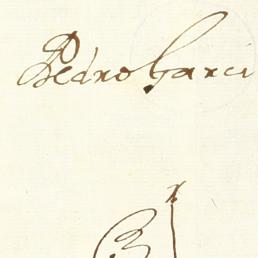 Pedro Garci